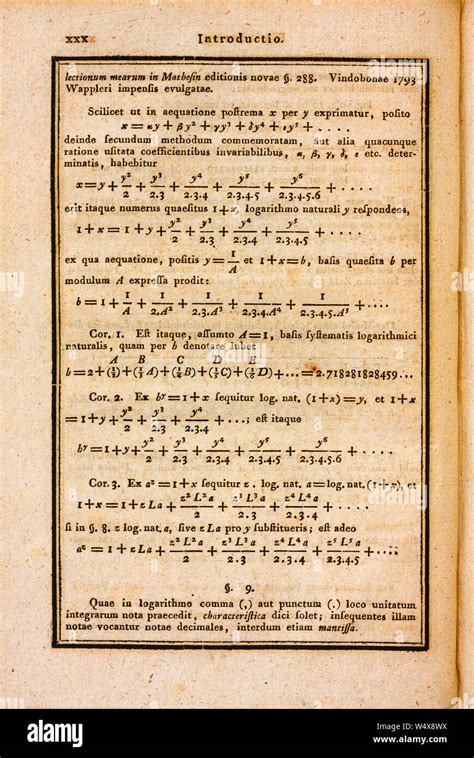 xxx Introductio.
lectionum mearum in Mathesin editionis novae §. 288. Vindobonae 1793
Wappleri impensis evulgatae.
Scilicet ut in aequatione postrema x per y exprimatur, posito
x = αy + βy² + γy³ + δy⁴ + εy⁵ + . . . .
deinde secundum methodum commemoratam, aut alia quacunque
ratione usitata coefficientibus invariabilibus, α, β, γ, δ, ε etc. deter-
minatis, habebitur
x = y + y²/2 + y³/2.3 + y⁴/2.3.4 + y⁵/2.3.4.5 + y⁶/2.3.4.5.6 + . . . .
erit itaque numerus quaesitus 1+x, logarithmo naturali y respondens,
1 + x = 1 + y + y²/2 + y³/2.3 + y⁴/2.3.4 + y⁵/2.3.4.5 + . . . .
ex qua aequatione, positis y = 1/A et 1+x = b, basis quaesita b per
modulum A expressa prodit:
b = 1 + 1/A + 1/2.A² + 1/2.3.A³ + 1/2.3.4.A⁴ + 1/2.3.4.5.A⁵ + . . . .
Cor. 1. Est itaque, assumto A = 1, basis systematis logarithmici
naturalis, quam per b denotare lubet
A B C D E
b = 2 + (½) + (⅓A) + (¼B) + (⅕C) + (⅙D) + ... = 2.718281828459...
Cor. 2. Ex bʸ = 1 + x sequitur log. nat. (1+x) = y, et 1+x
= 1 + y + y²/2 + y³/2.3 + y⁴/2.3.4 + . . . ; est itaque
bʸ = 1 + y + y²/2 + y³/2.3 + y⁴/2.3.4 + y⁵/2.3.4.5 + y⁶/2.3.4.5.6 + . . . .
Cor. 3. Ex aᶻ = 1 + x sequitur z . log. nat. a = log. nat. (1+x), et
1 + x = 1 + zLa + z²L²a/2 + z³L³a/2.3 + z⁴L⁴a/2.3.4 + . . . .
si in §. 8. z log. nat. a, sive zLa pro y substitueris; est adeo
aᶻ = 1 + zLa + z²L²a/2 + z³L³a/2.3 + z⁴L⁴a/2.3.4 + z⁵L⁵a/2.3.4.5 + . . . .
§. 9.
Quae in logarithmo comma (,) aut punctum (.) loco unitatum
integrarum nota praecedit, characteristica dici solet; insequentes illam
notae vocantur notae decimales, interdum etiam mantissa.
alamy
Image ID: W4X8WX
www.alamy.com